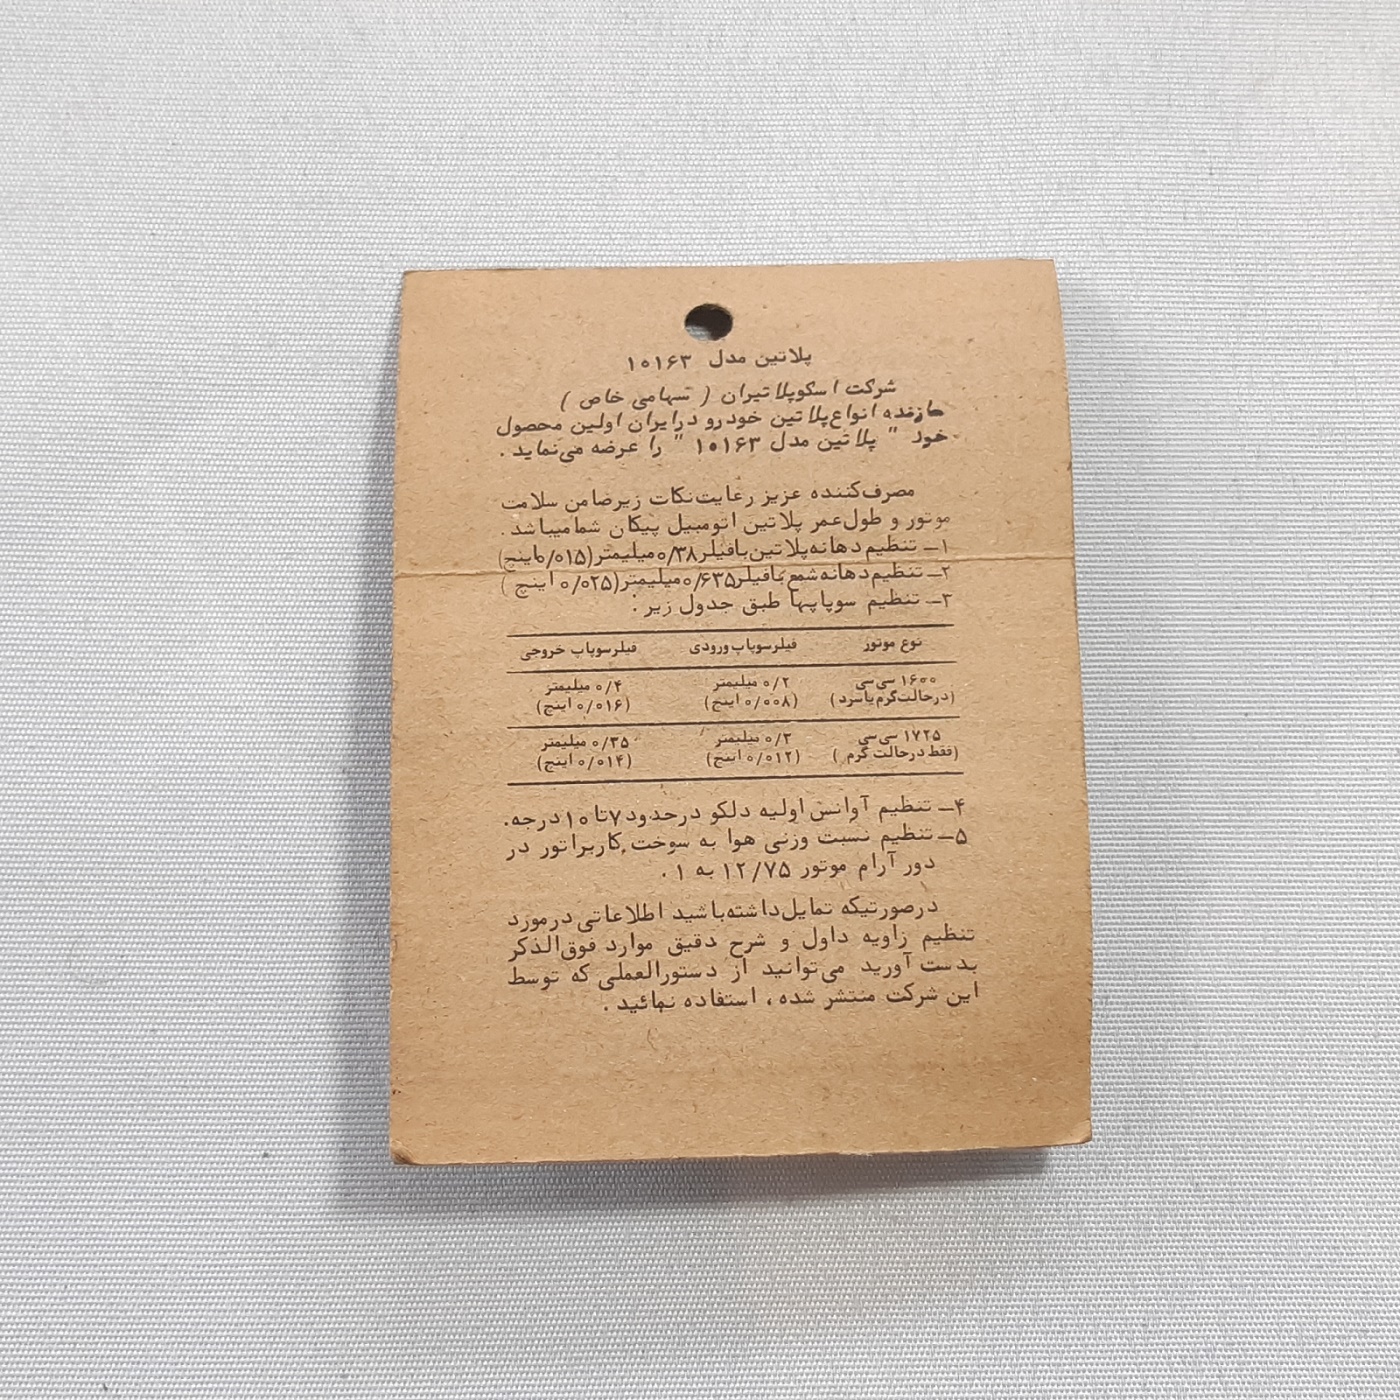 پلاتین مدل ۱۰۱۶۳
شرکت اسکوپلاتیران ( سهامی خاص )
سازنده انواع پلاتین خودرو در ایران اولین محصول
خود " پلاتین مدل ۱۰۱۶۳ " را عرضه می‌نماید .
مصرف‌کننده عزیز رعایت‌نکات زیرضامن سلامت
موتور و طول‌عمر پلاتین اتومبیل پیکان شمامیباشد .
۱ــ تنظیم دهانه‌پلاتین‌بافیلر۰/۳۸میلیمتر(۰/۰۱۵اینچ)
۲ــ تنظیم‌دهانه‌شمع‌بافیلر۰/۶۳۵میلیمتر(۰/۰۲۵ اینچ )
۳ــ تنظیم سوپاپها طبق جدول زیر :
نوع موتور فیلرسوپاپ ورودی فیلرسوپاپ خروجی
۱۶۰۰ سی‌سی ۰/۲ میلیمتر ۰/۴ میلیمتر
(درحالت‌گرم‌یاسرد ) (۰/۰۰۸ اینچ) (۰/۰۱۶ اینچ)
۱۷۲۵ سی‌سی ۰/۳ میلیمتر ۰/۳۵ میلیمتر
(فقط درحالت گرم ) (۰/۰۱۲ اینچ) (۰/۰۱۴ اینچ)
۴ــ تنظیم آوانس اولیه دلکو درحدود ۷تا ۱۰درجه.
۵ــ تنظیم نسبت وزنی هوا به سوخت کاربراتور در
دور آرام موتور ۱۲/۷۵ به ۱ .
درصورتیکه تمایل‌داشته‌باشید اطلاعاتی درمورد
تنظیم زاویه داول و شرح دقیق موارد فوق‌الذکر
بدست آورید می‌توانید از دستورالعملی که توسط
این شرکت منتشر شده ، استفاده نمائید .